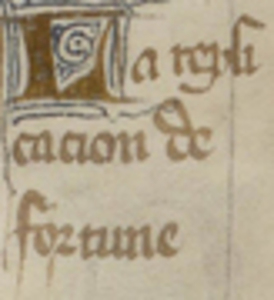 La repli
cacion de
fortune